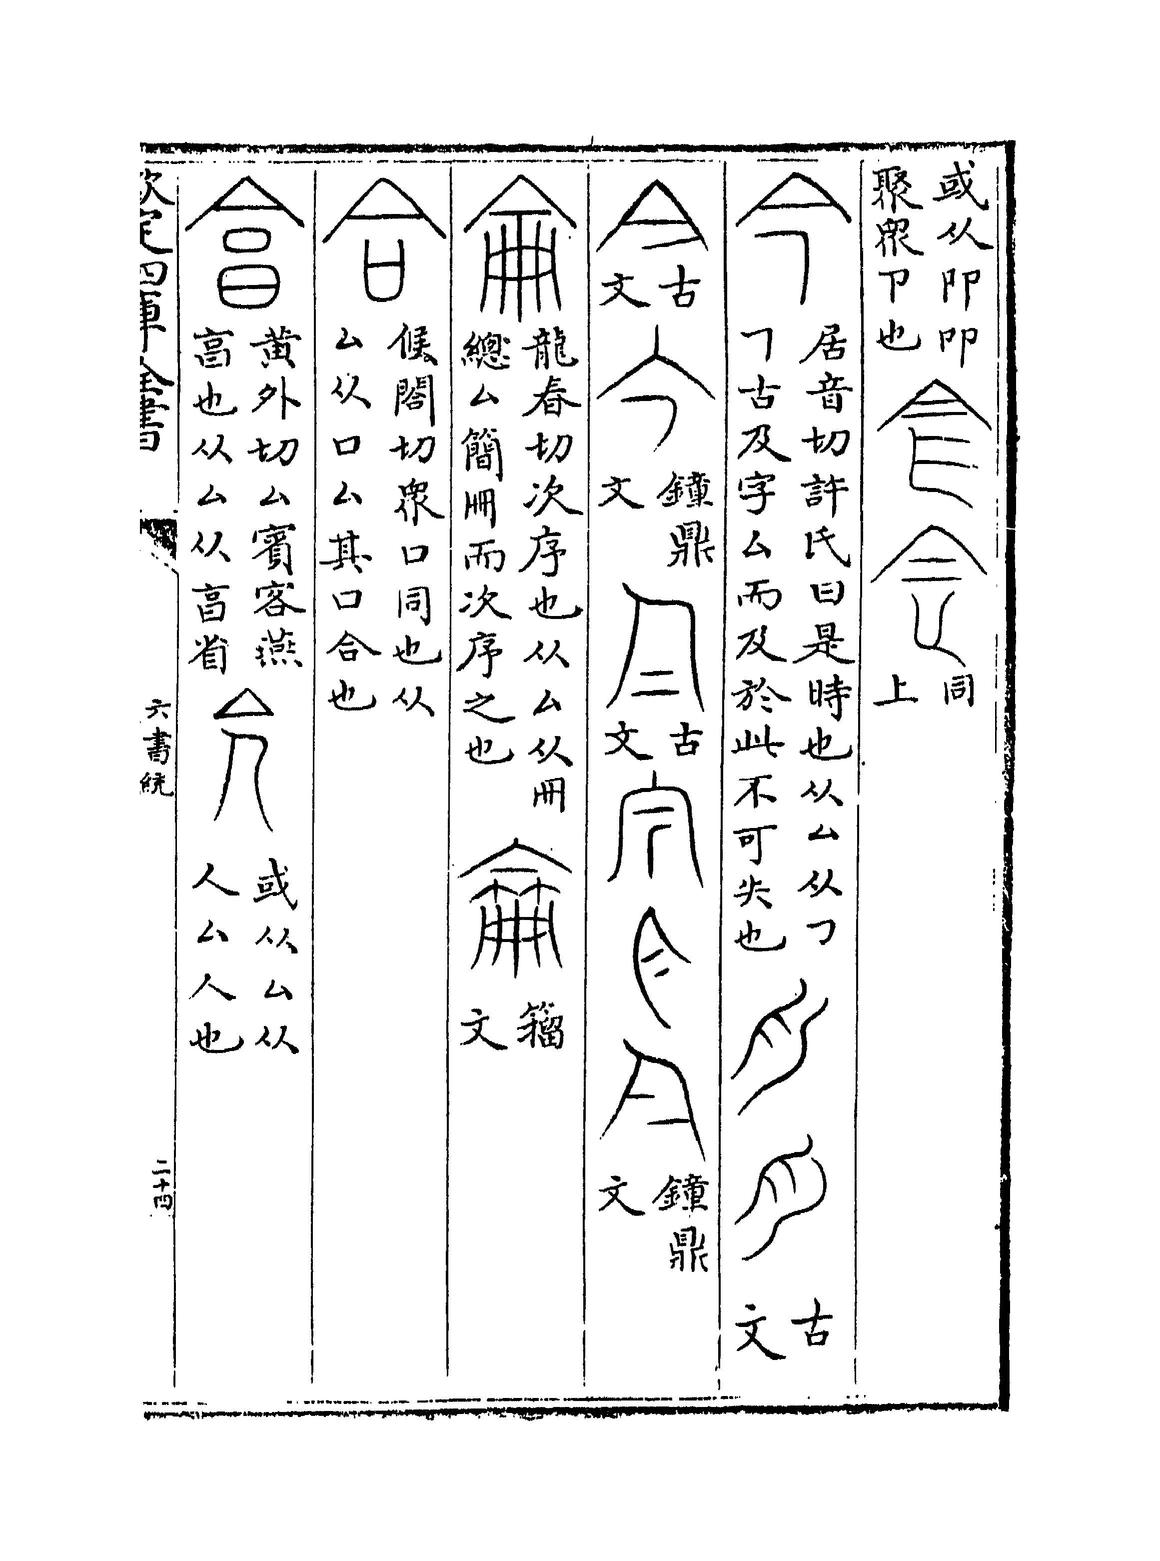 或从卪卪
聚衆卪也
同
上
居音切許氏曰是時也从亼从㇇
㇇古及字亼而及於此不可失也
古
文
古
文
鐘鼎
文
古
文
鐘鼎
文
龍春切次序也从亼从冊
總亼簡冊而次序之也
籀
文
候閤切衆口同也从
亼从口亼其口合也
黄外切亼賓客燕
亯也从亼从亯省
或从亼从
人亼人也
欽定四庫全書
六書統
二十四